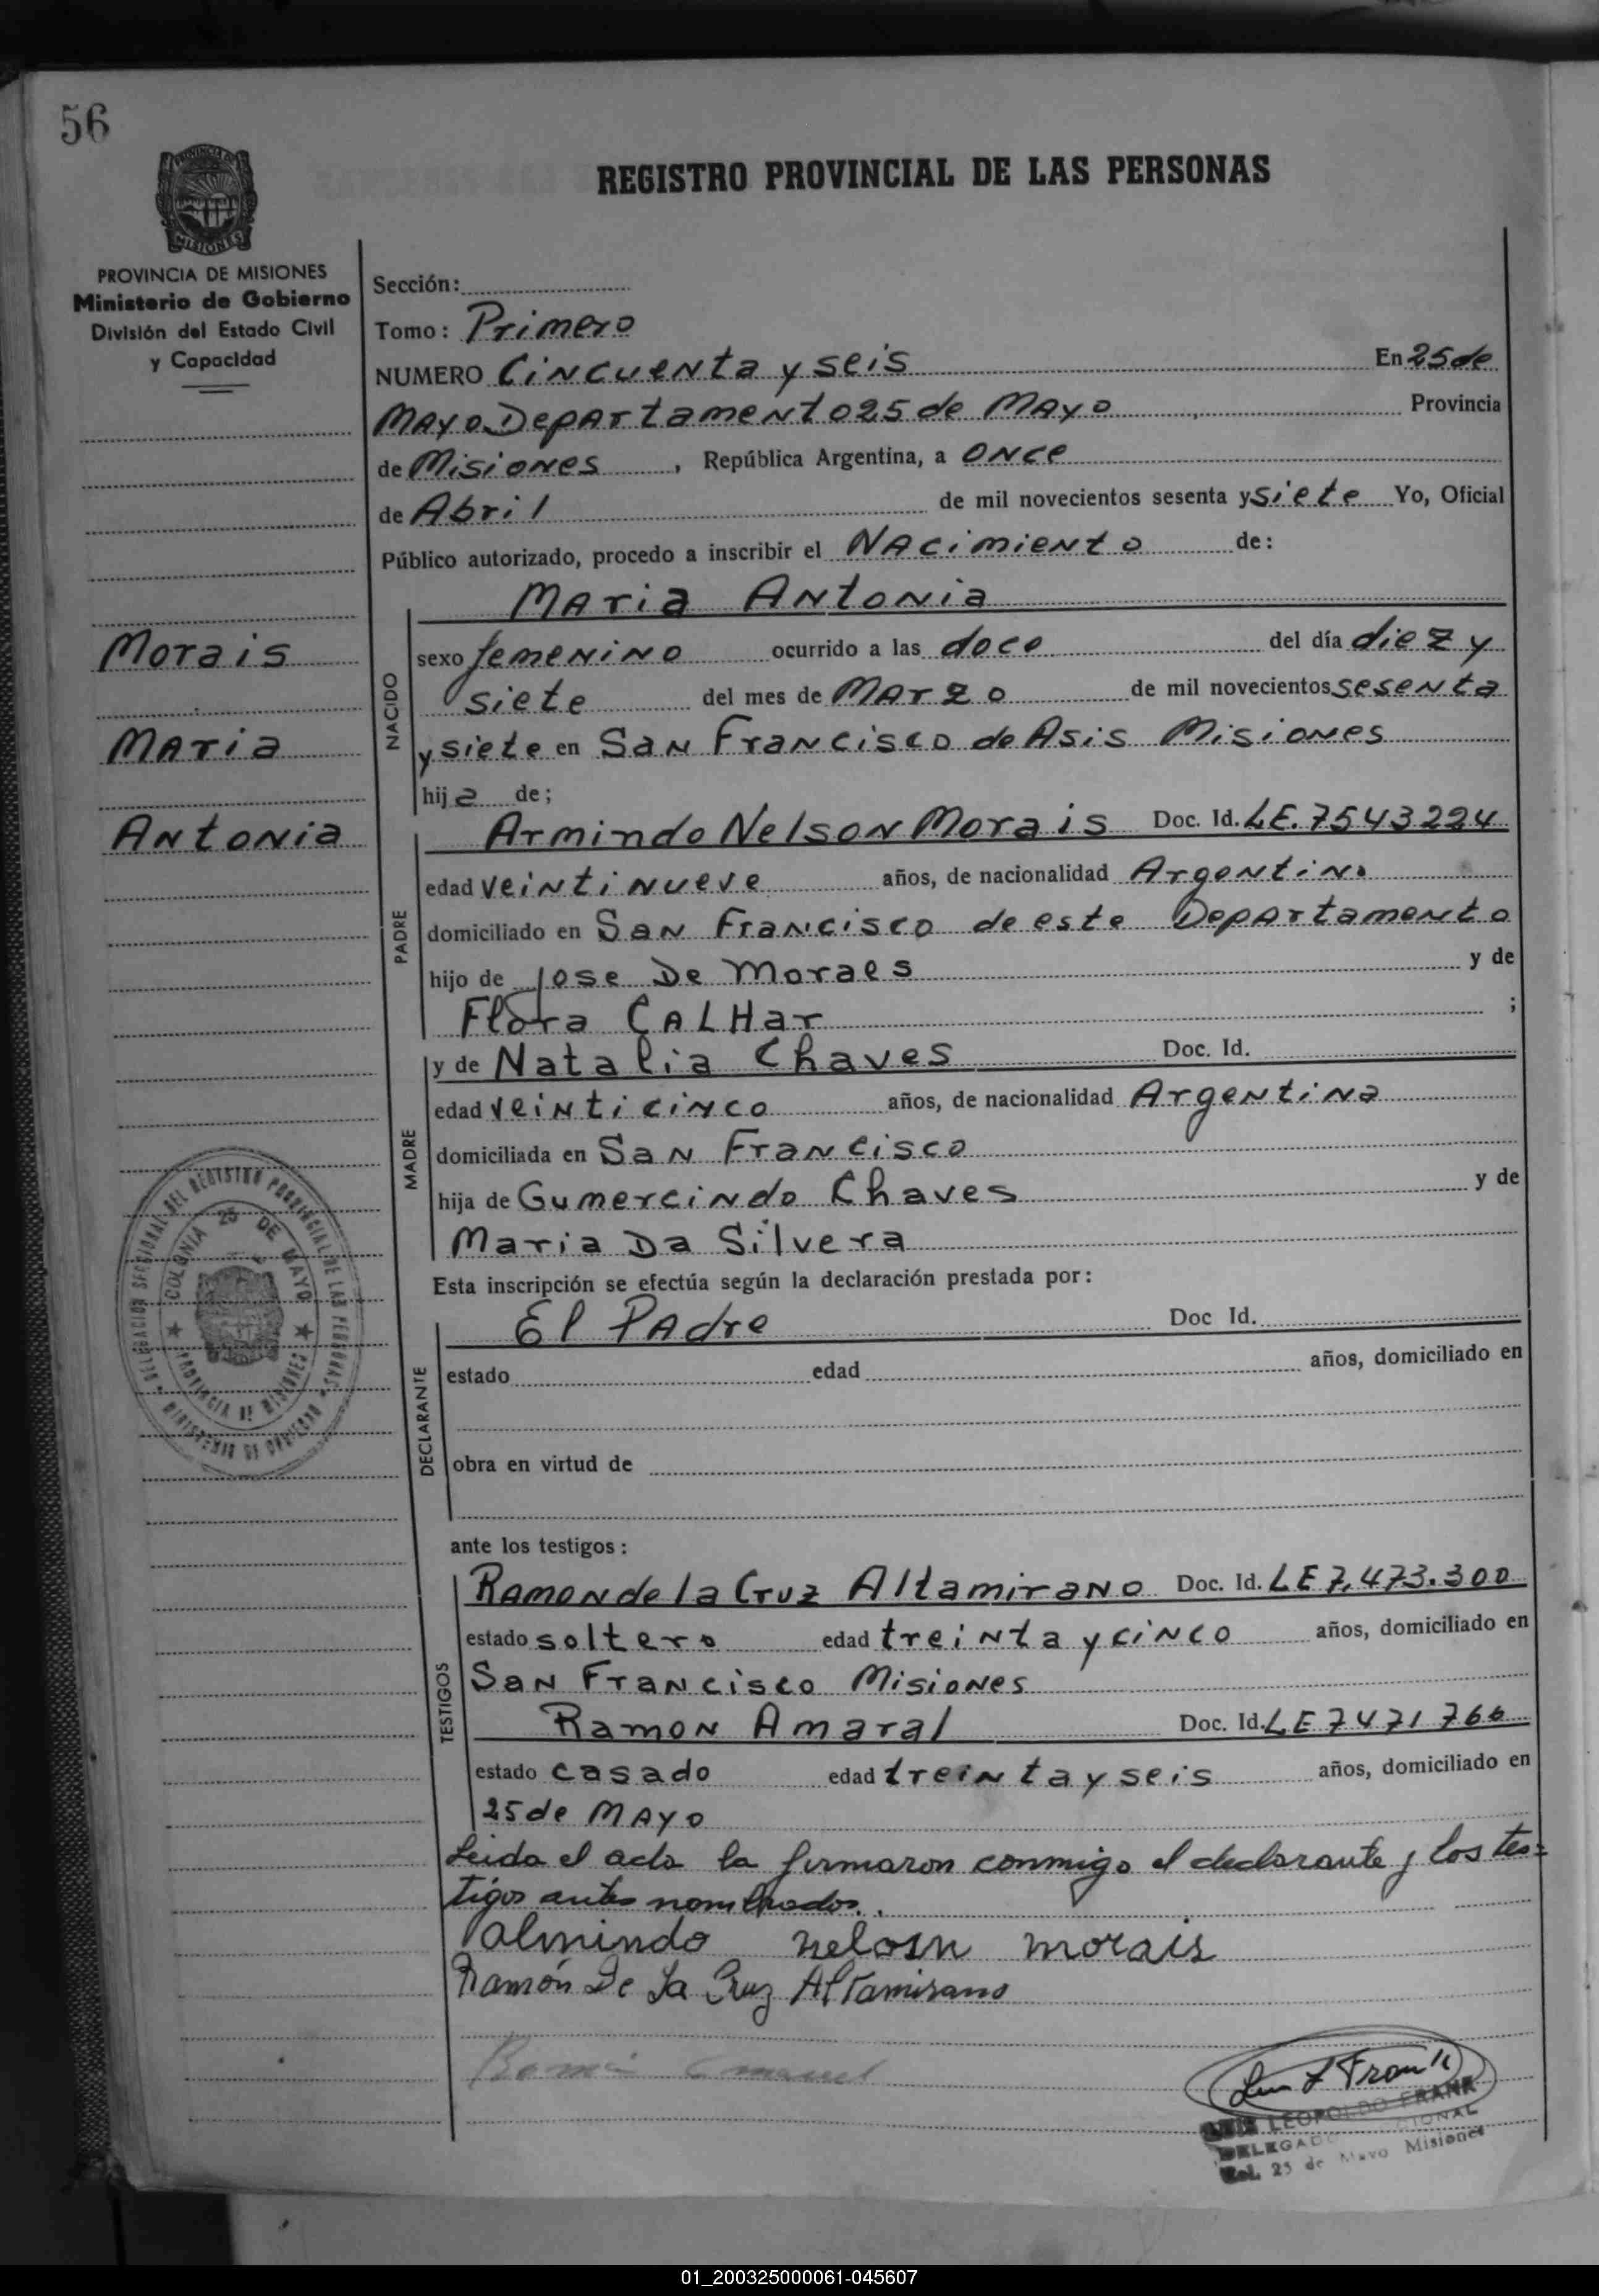 56
REGISTRO PROVINCIAL DE LAS PERSONAS
PROVINCIA DE
MISIONES
PROVINCIA DE MISIONES
Ministerio de Gobierno
División del Estado Civil
y Capacidad
Morais
Maria
Antonia
DELEGACION SECCIONAL DEL REGISTRO PROVINCIAL DE LAS PERSONAS
COLONIA 25 DE MAYO
PROVINCIA DE MISIONES
MINISTERIO DE GOBIERNO
Sección:
Tomo: Primero
NUMERO Cincuenta y seis En 25 de
Mayo Departamento 25 de Mayo Provincia
de Misiones, República Argentina, a once
de Abril de mil novecientos sesenta y siete Yo, Oficial
Público autorizado, procedo a inscribir el Nacimiento de:
NACIDO
Maria Antonia
sexo femenino ocurrido a las doce del día diez y
siete del mes de Marzo de mil novecientos sesenta
y siete en San Francisco de Asis Misiones
hija de;
PADRE
Armindo Nelson Morais Doc. Id. LE. 7543224
edad veintinueve años, de nacionalidad Argentino
domiciliado en San Francisco de este Departamento
hijo de Jose De Moraes y de
Flora Calhar ;
MADRE
y de Natalia Chaves Doc. Id.
edad veinticinco años, de nacionalidad Argentina
domiciliada en San Francisco
hija de Gumercindo Chaves y de
Maria Da Silvera
Esta inscripción se efectúa según la declaración prestada por:
DECLARANTE
El Padre Doc Id.
estado edad años, domiciliado en
obra en virtud de
ante los testigos:
TESTIGOS
Ramon de la Cruz Altamirano Doc. Id. LE 7,473.300
estado soltero edad treinta y cinco años, domiciliado en
San Francisco Misiones
Ramon Amaral Doc. Id. LE 7471766
estado casado edad treinta y seis años, domiciliado en
25 de Mayo
Leida el acta la firmaron conmigo el declarante y los tes=
tigos antes nombrados.
almindo nelosn morais
Ramón De La Cruz Altamirano
Luis L Frank
LUIS LEOPOLDO FRANK
DELEGADO
Col. 25 de Mayo Misiones
01_200325000061-045607